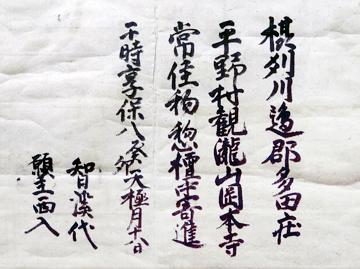 摂刕川邉郡多田庄
平野村観瀧山岡本寺
常住物惣檀中寄進
于時享保八癸卯天極月十八日
智漢代
願主西入